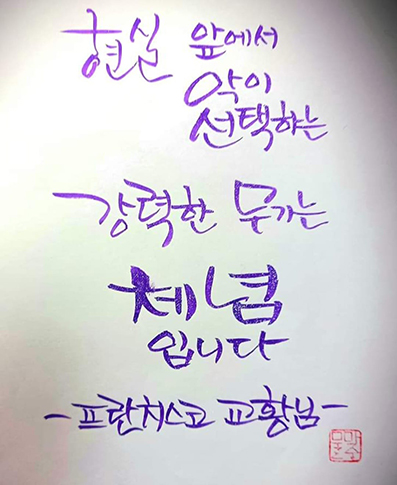 현실 앞에서
악이
선택하는
강력한 무기는
체념
입니다
-프란치스코 교황님-